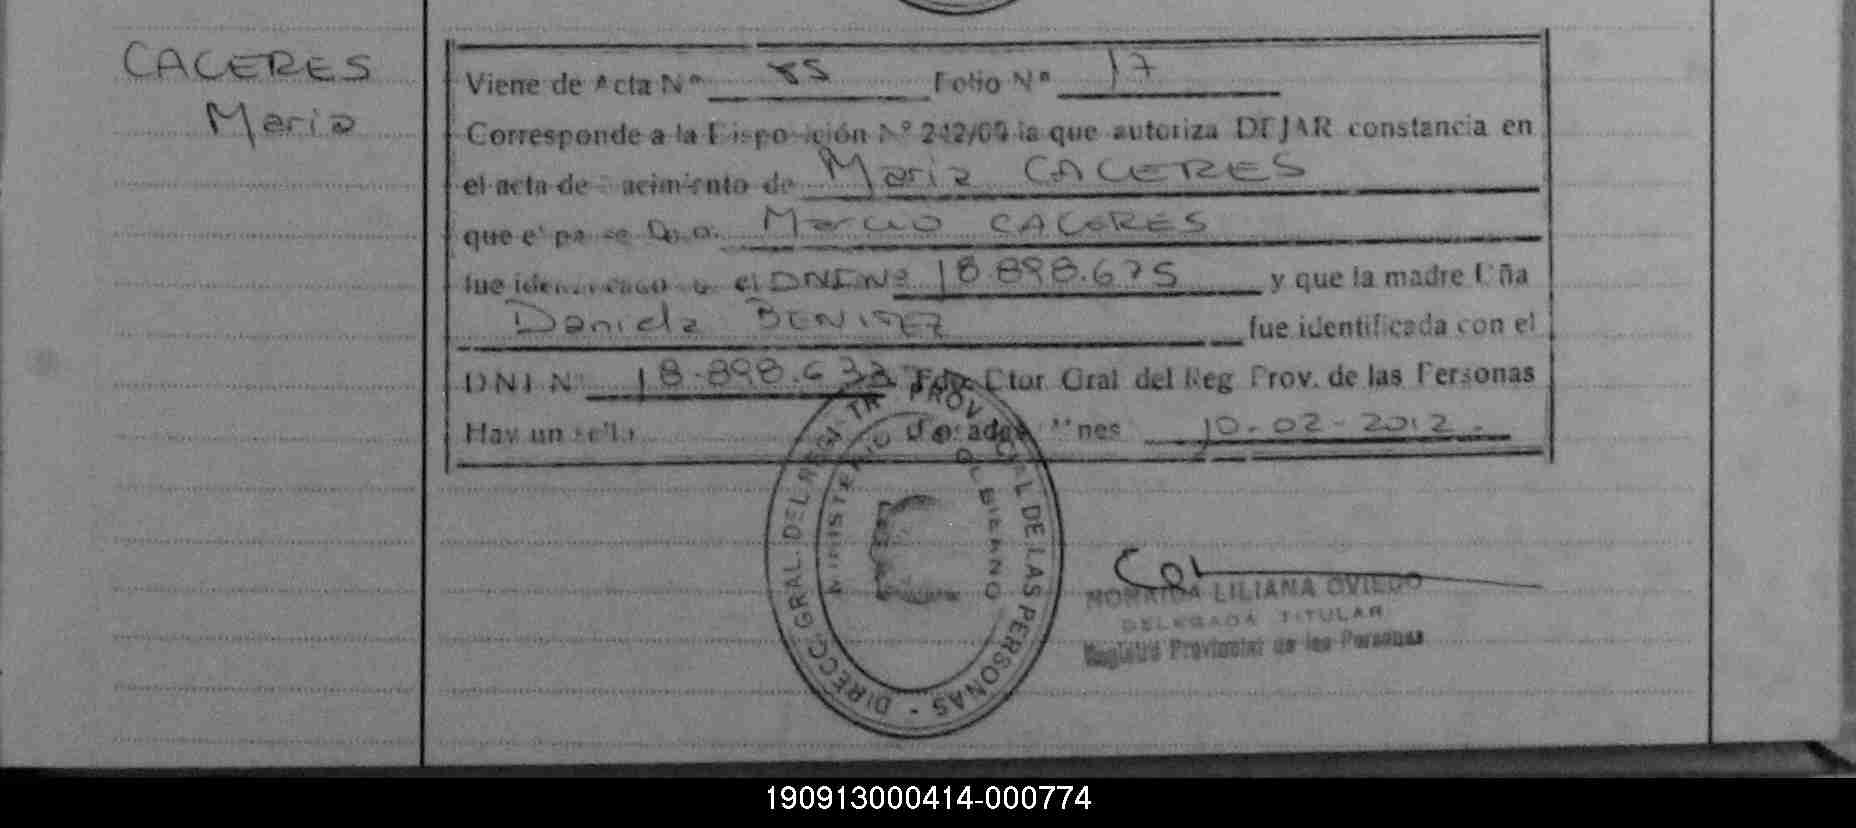 CACERES
Maria
Viene de Acta Nº 85 Folio Nº 17
Corresponde a la Disposición Nº 242/09 la que autoriza DEJAR constancia en
el acta de nacimiento de Maria CACERES
que el padre Don Marcio CACERES
fue identificado con el DNI Nº 18.898.675 y que la madre Dña
Daniela BENITEZ fue identificada con el
DNI Nº 18.898.633 Fdo Dtor Gral del Reg Prov. de las Personas
Hay un sello 10-02-2012.
DIRECC. GRAL. DEL REGISTRO PROVINCIAL DE LAS PERSONAS -
MINISTERIO DE GOBIERNO
NORAIDA LILIANA OVIEDO
DELEGADA TITULAR
Registro Provincial de las Personas
190913000414-000774